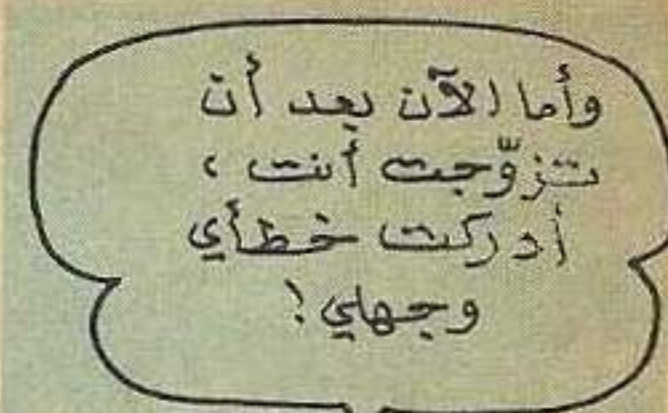 وأما الآن بعد أن
تزوّجت أنت ،
أدركت خطأي
وجهلي !